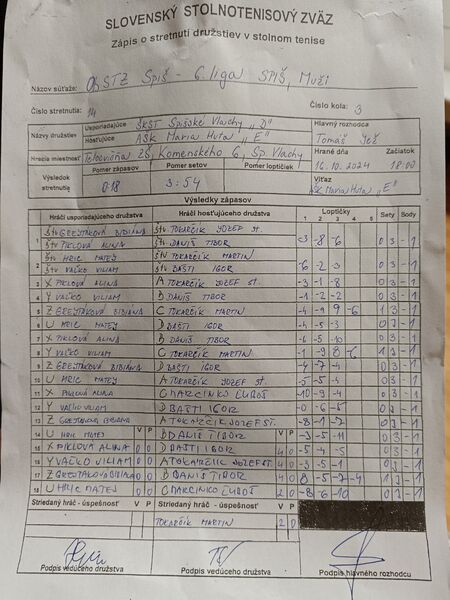 SLOVENSKÝ STOLNOTENISOVÝ ZVÄZ
Zápis o stretnutí družstiev v stolnom tenise
Názov súťaže: ObSTZ Spiš - 6. liga SPIŠ, Muži
Číslo stretnutia: 14 Číslo kola: 3
Názvy družstiev
Usporiadajúce ŠKST Spišské Vlachy „D"
Hosťujúce AŠK Maria Huta „E"
Hlavný rozhodca Tomáš
Hracia miestnosť Telocvičňa ZŠ, Komenského 6, Sp. Vlachy
Hrané dňa 16.10.2024 Začiatok 18:00
Výsledok stretnutia Pomer zápasov 0:18 Pomer setov 3:54 Pomer loptičiek
Víťaz AŠK Maria Huta „E"
Výsledky zápasov
Hráči usporiadajúceho družstva Hráči hosťujúceho družstva Loptičky 1 2 3 4 5 Sety Body
1 štv GREŠTÁKOVÁ BIBIÁNA štv TOKARČÍK JOZEF st.
štv PIKLOVÁ ALINA štv DANIŠ TIBOR -3 -8 -6 0 3 - 1
2 štv HRIC MATEJ štv TOKARČÍK MARTIN
štv VAČKO VILIAM štv BAŠTI IGOR -6 -2 -3 0 3 - 1
3 X PIKLOVÁ ALINA A TOKARČÍK JOZEF st. -3 -1 -8 0 3 - 1
4 Y VAČKO VILIAM B DANIŠ TIBOR -1 -2 -2 0 3 - 1
5 Z GREŠTÁKOVÁ BIBIÁNA C TOKARČÍK MARTIN -4 -9 9 -6 1 3 - 1
6 U HRIC MATEJ D BAŠTI IGOR -4 -5 -3 0 3 - 1
7 X PIKLOVÁ ALINA B DANIŠ TIBOR -6 -5 -10 0 3 - 1
8 Y VAČKO VILIAM C TOKARČÍK MARTIN -1 -9 8 -6 1 3 - 1
9 Z GREŠTÁKOVÁ BIBIÁNA D BAŠTI IGOR -4 -7 -4 0 3 - 1
10 U HRIC MATEJ A TOKARČÍK JOZEF st. -5 -5 -4 0 3 - 1
11 X PIKLOVÁ ALINA C MARCINKO ĽUBOŠ -10 -9 -4 0 3 - 1
12 Y VAČKO VILIAM D BAŠTI IGOR -0 -6 -5 0 3 - 1
13 Z GREŠTÁKOVÁ BIBIANA A TOKARČÍK JOZEF ST. -8 -1 -7 0 3 - 1
14 U HRIC MATEJ V P B DANIŠ TIBOR V P -3 -5 -11 0 3 - 1
15 X PIKLOVÁ ALINA 0 0 D BAŠTI IGOR 4 0 -5 -4 -5 0 3 - 1
16 Y VAČKO VILIAM 0 0 A TOKARČÍK JOZEF ST. 4 0 -3 -5 -1 0 3 - 1
17 Z GREŠTÁKOVÁ BIBIÁNA 0 0 B DANIS TIBOR 4 0 8 -5 -7 -4 1 3 - 1
18 U HRIC MATEJ 0 0 C MARCINKO ĽUBOŠ 2 0 -8 -6 -10 0 3 - 1
Striedaný hráč - úspešnosť V P Striedaný hráč - úspešnosť V P
TOKARČÍK MARTIN 2 0
Podpis vedúceho družstva Podpis vedúceho družstva Podpis hlavného rozhodcu